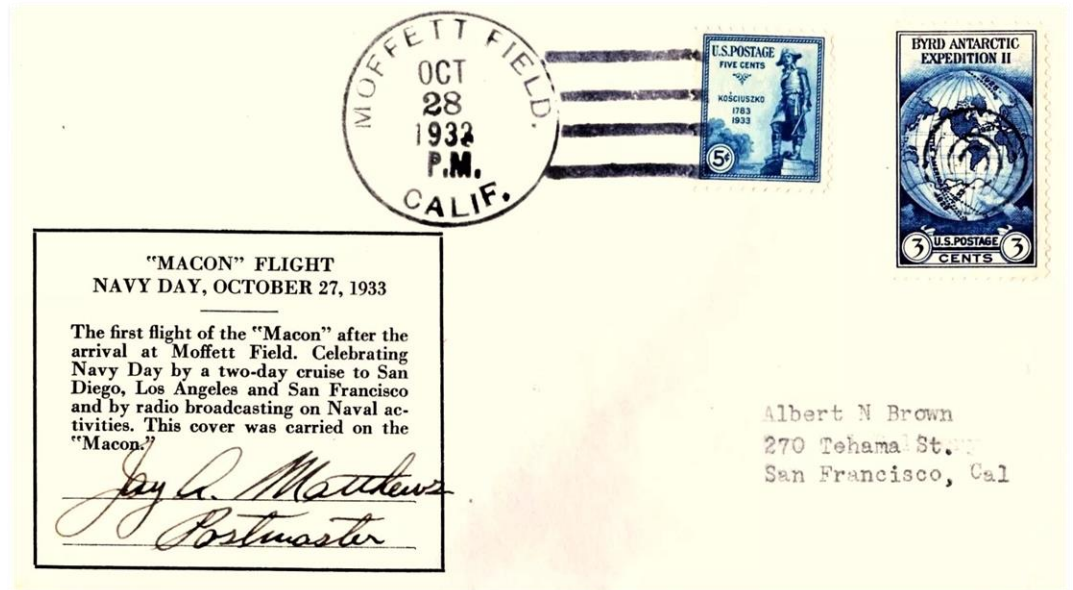 MOFFETT FIELD.
OCT
28
1933
P.M.
CALIF.
U.S.POSTAGE
FIVE CENTS
KOŚCIUSZKO
1783
1933
5¢
BYRD ANTARCTIC
EXPEDITION II
3 U.S.POSTAGE 3
CENTS
"MACON" FLIGHT
NAVY DAY, OCTOBER 27, 1933
The first flight of the "Macon" after the
arrival at Moffett Field. Celebrating
Navy Day by a two-day cruise to San
Diego, Los Angeles and San Francisco
and by radio broadcasting on Naval ac-
tivities. This cover was carried on the
"Macon."
Jay A. Matthews
Postmaster
Albert N Brown
270 Tehama St.
San Francisco, Cal